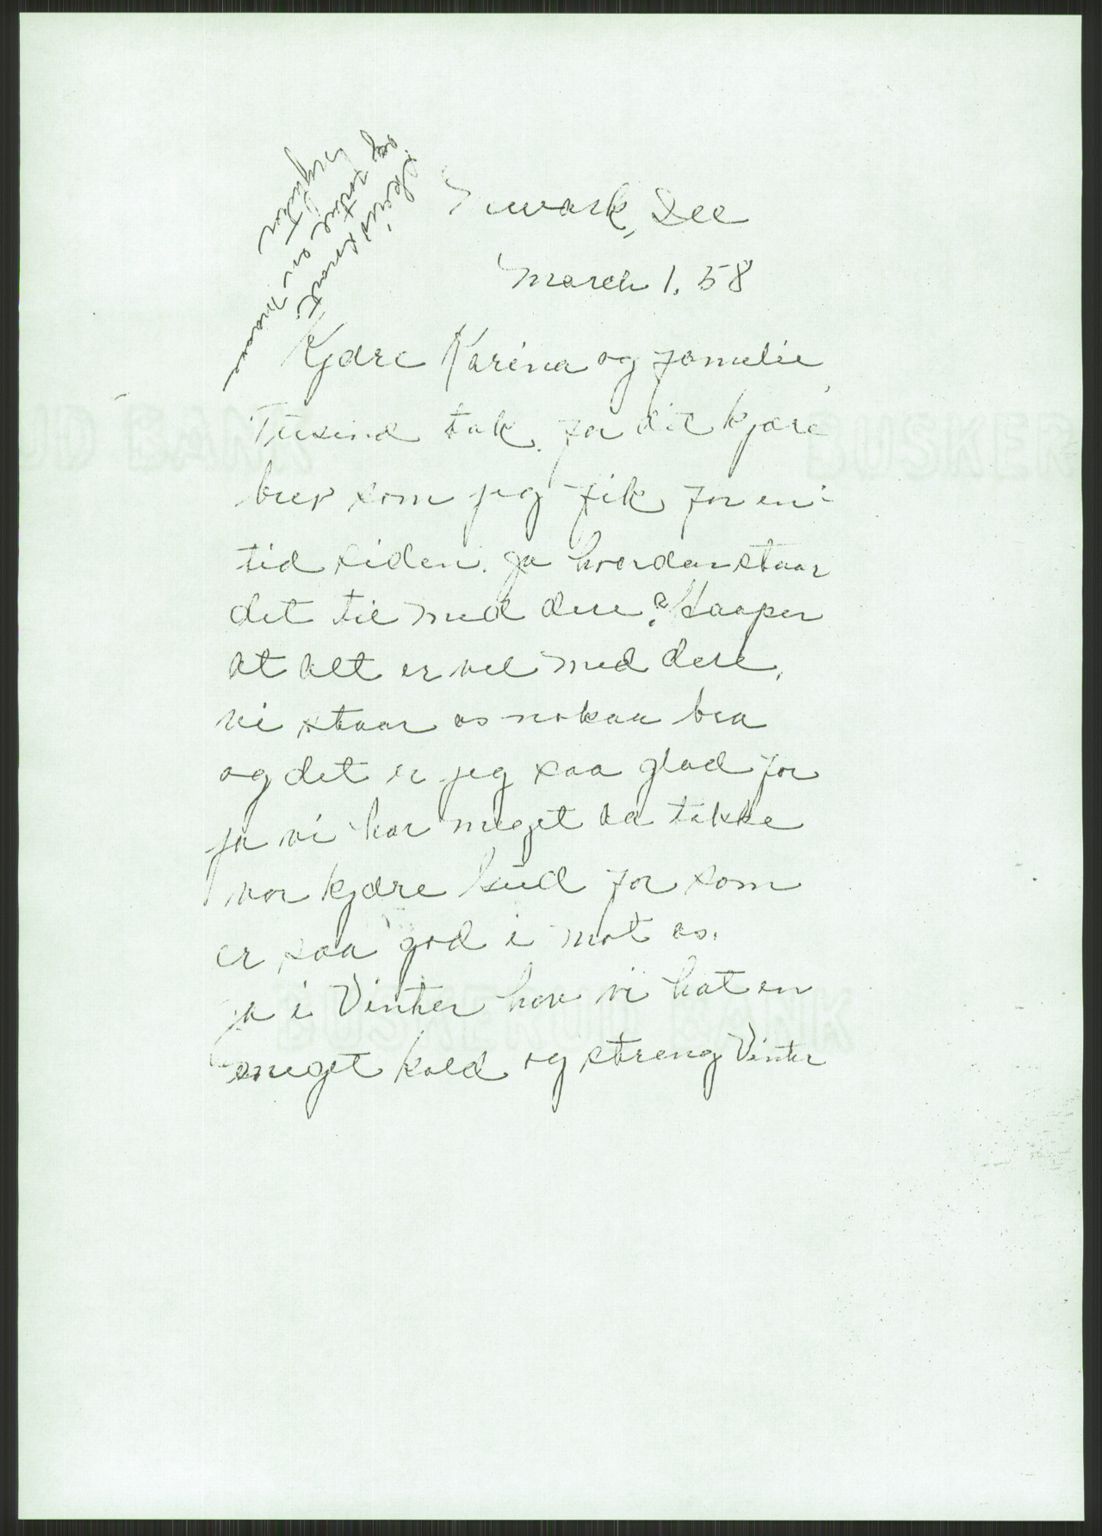 Newark, Ill
March 1. 58
Kjære Karina og familie,
Tusind tak for dit kjære
brev som jeg fik for en
tid siden. ja hvordan staar
det til med dere? Haaper
at alt er vel med dere,
vi staar os nokaa bra
og det er jeg saa glad for
ja vi har meget aa takke
vor kjære Gud for som
er saa god i mot os.
ja i Vinter har vi hat en
meget kold og streng Vinter
BUSKERUD BANK